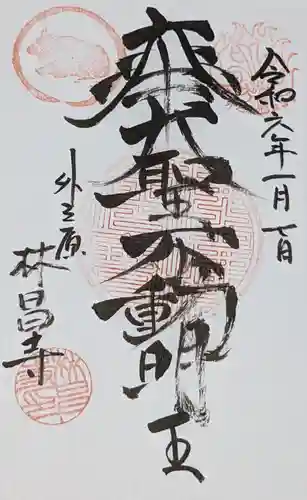 令和六年一月七日
大聖不動明王
外之原
林昌寺